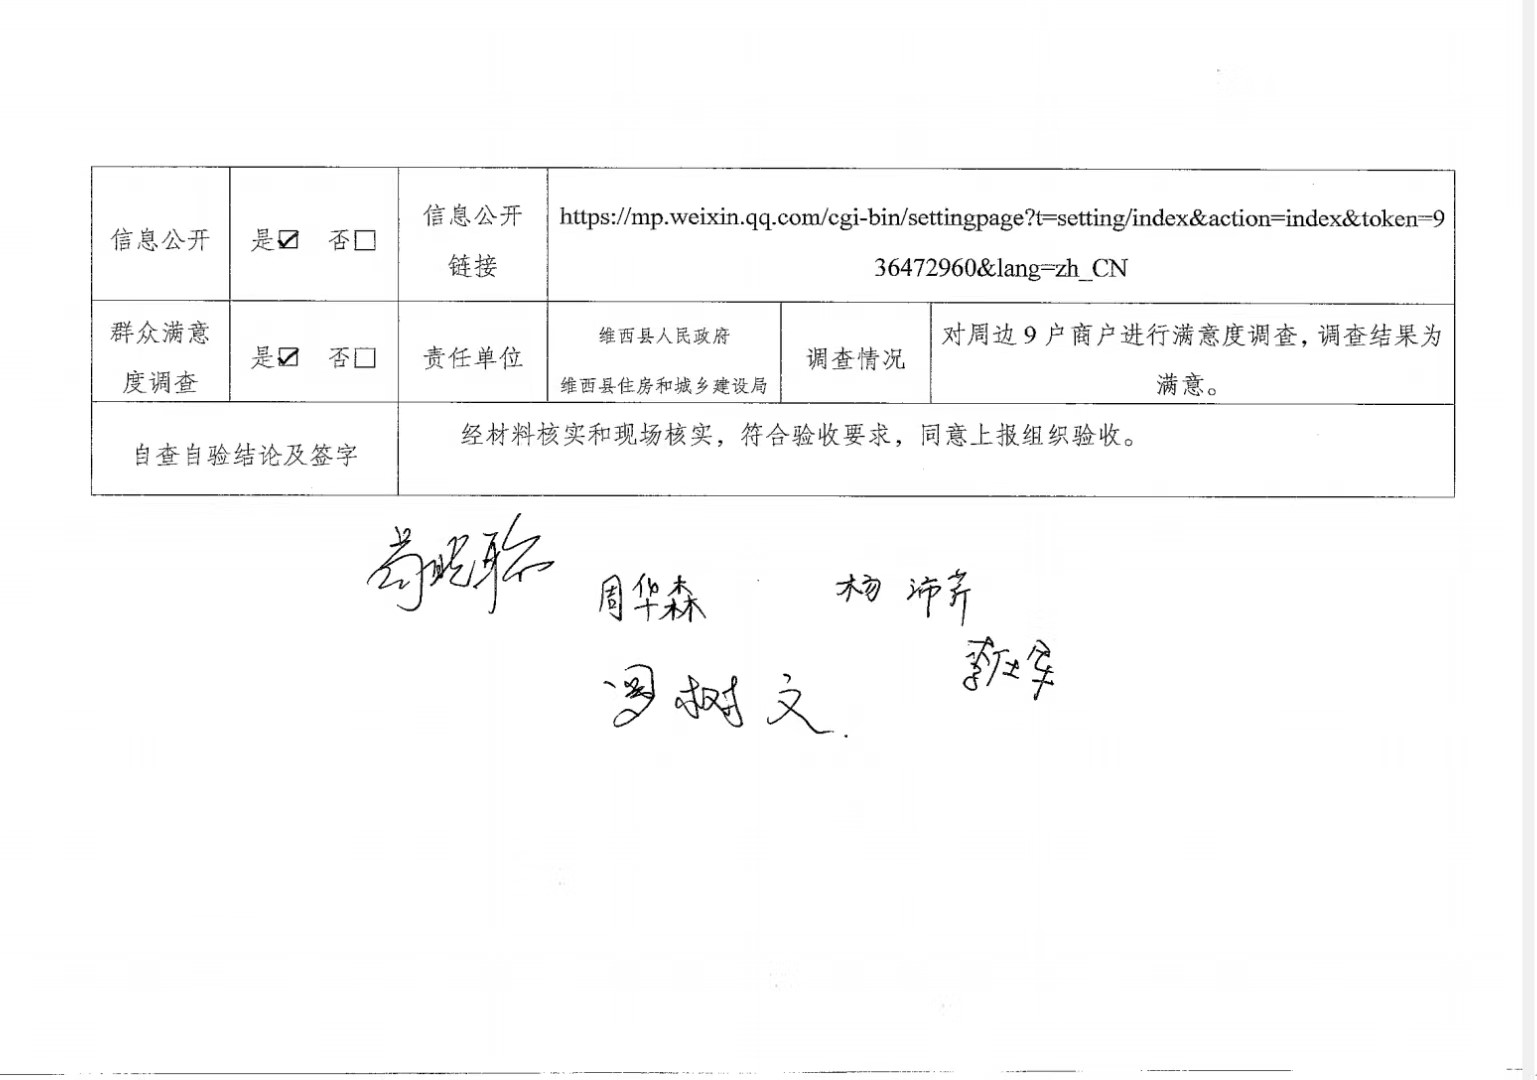 信息公开
是☑ 否☐
信息公开
链接
https://mp.weixin.qq.com/cgi-bin/settingpage?t=setting/index&action=index&token=9
36472960&lang=zh_CN
群众满意
度调查
是☑ 否☐
责任单位
维西县人民政府
维西县住房和城乡建设局
调查情况
对周边 9 户商户进行满意度调查，调查结果为
满意。
自查自验结论及签字
经材料核实和现场核实，符合验收要求，同意上报组织验收。
周华森
杨沛芹
树文